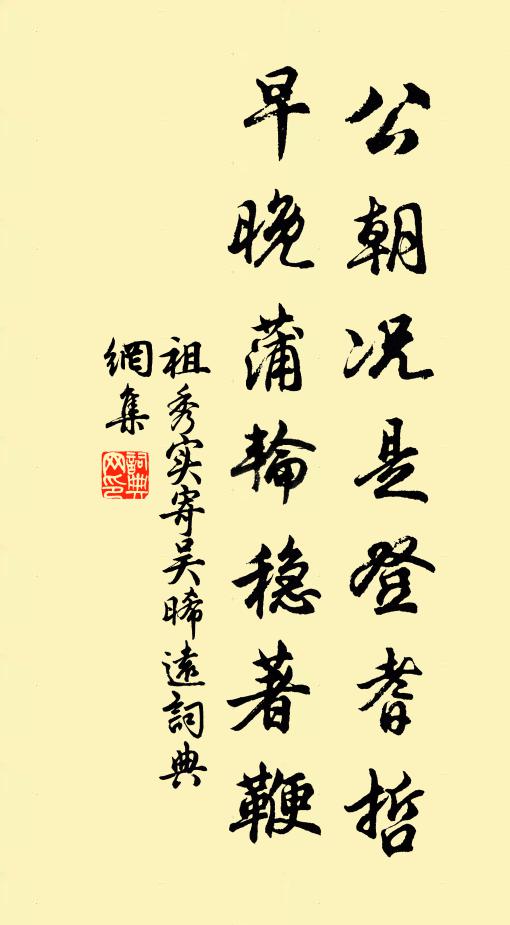 公朝况是登耆哲
早晚蒲輪稳著鞭
祖秀实寄吴晞遠詞典
網集
詞典網印